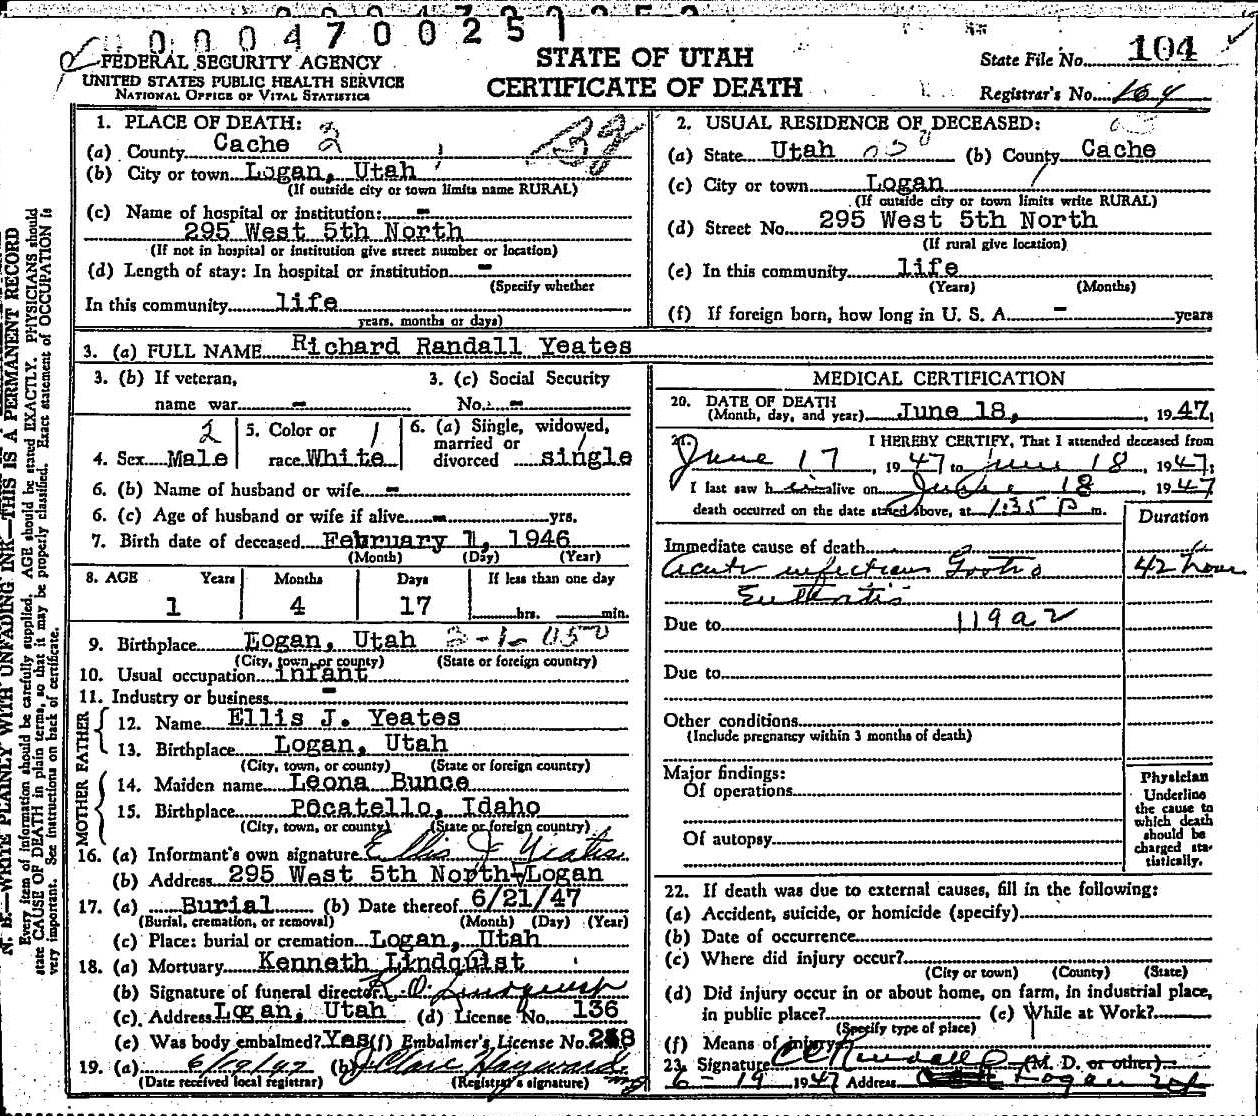 0004700251
FEDERAL SECURITY AGENCY
UNITED STATES PUBLIC HEALTH SERVICE
NATIONAL OFFICE OF VITAL STATISTICS
STATE OF UTAH
CERTIFICATE OF DEATH
State File No. 104
Registrar's No. 164
N. B.—WRITE PLAINLY WITH UNFADING INK—THIS IS A PERMANENT RECORD
Every item of information should be carefully supplied. AGE should be stated EXACTLY. PHYSICIANS should
state CAUSE OF DEATH in plain terms, so that it may be properly classified. Exact statement of OCCUPATION is
very important. See instructions on back of certificate.
1. PLACE OF DEATH: 2
(a) County Cache
(b) City or town Logan, Utah
(If outside city or town limits name RURAL)
(c) Name of hospital or institution: -
295 West 5th North
(If not in hospital or institution give street number or location)
(d) Length of stay: In hospital or institution -
(Specify whether
In this community life
years, months or days)
2. USUAL RESIDENCE OF DECEASED:
(a) State Utah (b) County Cache
(c) City or town Logan
(If outside city or town limits write RURAL)
(d) Street No. 295 West 5th North
(If rural give location)
(e) In this community life
(Years) (Months)
(f) If foreign born, how long in U. S. A. - years
3. (a) FULL NAME Richard Randall Yeates
3. (b) If veteran, name war -
3. (c) Social Security No. -
4. Sex Male 2
5. Color or race White 1
6. (a) Single, widowed, married or divorced single
6. (b) Name of husband or wife -
6. (c) Age of husband or wife if alive - yrs.
7. Birth date of deceased February 1, 1946
(Month) (Day) (Year)
8. AGE Years Months Days If less than one day
1 4 17 hrs. min.
9. Birthplace Logan, Utah
(City, town, or county) (State or foreign country)
10. Usual occupation infant
11. Industry or business -
FATHER
12. Name Ellis J. Yeates
13. Birthplace Logan, Utah
(City, town, or county) (State or foreign country)
MOTHER
14. Maiden name Leona Bunce
15. Birthplace Pocatello, Idaho
(City, town, or county) (State or foreign country)
16. (a) Informant's own signature Ellis J Yeates
(b) Address 295 West 5th North-Logan
17. (a) Burial (b) Date thereof 6/21/47
(Burial, cremation, or removal) (Month) (Day) (Year)
(c) Place: burial or cremation Logan, Utah
18. (a) Mortuary Kenneth Lindquist
(b) Signature of funeral director K. O. Lindquist
(c) Address Logan, Utah (d) License No. 136
(e) Was body embalmed? Yes (f) Embalmer's License No. 238
19. (a) 6/19/47 (b) J Clare Hayward
(Date received local registrar) (Registrar's signature)
MEDICAL CERTIFICATION
20. DATE OF DEATH
(Month, day, and year) June 18, , 1947,
21. I HEREBY CERTIFY, That I attended deceased from
June 17, 1947 to June 18, 1947;
I last saw him alive on June 18, 1947
death occurred on the date stated above, at 1:35 P m.
Duration
Immediate cause of death
Acute infectious Gastro 42 hours
Enteritis
Due to 119a2
Due to
Other conditions
(Include pregnancy within 3 months of death)
Major findings:
Of operations
Of autopsy
Physician
Underline
the cause to
which death
should be
charged sta-
tistically.
22. If death was due to external causes, fill in the following:
(a) Accident, suicide, or homicide (specify)
(b) Date of occurrence
(c) Where did injury occur?
(City or town) (County) (State)
(d) Did injury occur in or about home, on farm, in industrial place,
in public place? (e) While at Work?
(Specify type of place)
(f) Means of injury
23. Signature C C Randall (M. D. or other)
6-19 1947 Address Logan